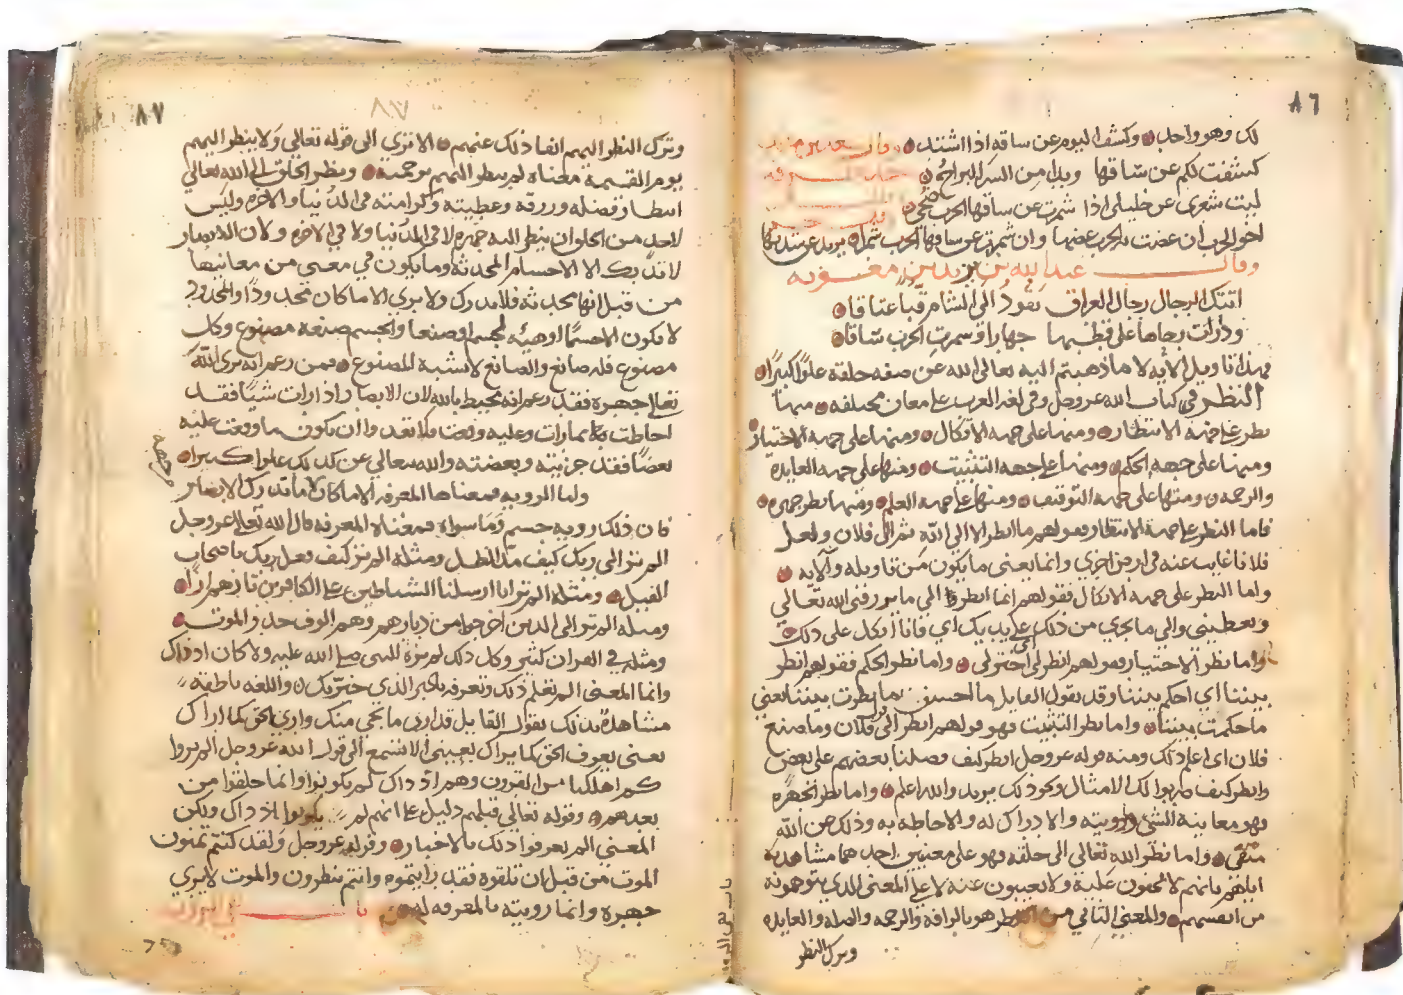 ٨٦
لك وهو واحد وكشف اليوم عن ساقه اذا اشتد وقال سعد بن
كشفت لكم عن ساقها وبدا من الشر البراح
ليت شعري عن خليلي اذا شمرت عن ساقها الحرب
اخو الحرب ان عضت به الحرب عضها وان شمرت عن ساقها الحرب شمرا يريد عن شدتها
وقال عبد الله بن يزيد بن معوية
اتتك الرجال رجال العراق تقود الى الشام قبا عتاقا
ودارت رحاها على قطبها جهارا وشمرت الحرب ساقا
فهذا تاويل الايه لا ما ذهبتم اليه تعالى الله عن صفه خلقه علوا كبيرا
النظر في كتاب الله عز وجل وفي لغه العرب على معان مختلفه منها
نظر على جهه الانتظار ومنها على جهه الاتكال ومنها على جهه الاختيار
ومنها على جهه الحكم ومنها على جهه التثبيت ومنها على جهه العايده
والرحمه ومنها على جهه التوقيف ومنها على جهه العلم ومنها نظر جهره
فاما النظر على جهه الانتظار فقولهم ما انظر الا الى الله ثم الى فلان ولعل
فلانا غايب عنه في ارض اخرى وانما يعني ما يكون من تاويله وآلايه
واما النظر على جهه الاتكال فقولهم انما انظر الى ما يرزقني الله تعالى
ويعطيني والى ما يجري من ذلك على يديك اي فانا اتكل على ذلك
واما نظر الاختيار فقولهم انظر لي اي اختر لي واما نظر الحكم فقولهم انظر
بيننا اي احكم بيننا وقد يقول القايل ما احسن ما نظرت بيننا يعني
ما حكمت بيننا واما نظر التثبيت فهو قولهم انظر الى فلان وما صنع
فلان اي اعلم ذلك ومنه قوله عز وجل انظر كيف فضلنا بعضهم على بعض
وانظر كيف ضربوا لك الامثال ونحو ذلك يريد والله اعلم واما نظر الجهره
فهو معاينه الشي ورويته والادراك له والاحاطه به وذلك عن الله
منفي واما نظر الله تعالى الى خلقه فهو على معنيين احدهما مشاهدته
اياهم بانهم لا يخفون عليه ولا يغيبون عنه لا على المعنى الذي يتوهمونه
من انفسهم والمعنى الثاني من النظر هو بالرافه والرحمه والصله والعايده
وترك النظر
٨٧
٨٧
وترك النظر اليهم انفاذ ذلك عنهم الا ترى الى قوله تعالى ولا ينظر اليهم
يوم القيمة معناه لم ينظر اليهم برحمته ونظر الخلق الى الله تعالى
انتظار فضله ورزقه وعطيته وكرامته في الدنيا والاخره وليس
لاحد من الخلق ان ينظر اليه جهره لا في الدنيا ولا في الاخره ولان الابصار
لا تدرك الا الاجسام المحدثه وما يكون في معنى من معانيها
من قبل انها محدثه فلا تدرك ولا يرى الا ما كان محدودا والمحدود
لا يكون الا جسما او هيئه لجسم او صنعا والجسم صنعه مصنوع وكل
مصنوع فله صانع والصانع لا يشبه المصنوع فمن زعم انه يرى الله
تعالى جهره فقد زعم انه يحيط بالله لان الابصار اذا رات شيا فقد
احاطت بكل ما رات وعليه وقعت فلا تعدوا ان يكون ما وقعت عليه
بعضا فقد جزيته وبعضته والله تعالى عن كل ذلك علوا كبيرا
واما الرويه فمعناها المعرفه الا ما كان لا ما تدرك الابصار
فان ذلك رويه جسم وما سواه فمعناه المعرفه قال الله تعالى عز وجل
الم تر الى ربك كيف مد الظل ومثله الم تر كيف فعل ربك باصحاب
الفيل ومثله الم تر انا ارسلنا الشياطين على الكافرين تازهم ازا
ومثله الم تر الى الذين اخرجوا من ديارهم وهم الوف حذر الموت
ومثله في القران كثير وكل ذلك لم يره النبي صلى الله عليه ولا كان اذ ذاك
وانما المعنى الم تعلم ذلك وتعرفه بالخبر الذي خبرك واللغه ناطقه
مشاهده بذلك يقول القايل قد ارى ما نحى منك وارى الحق كما اراك
يعني يعرف الحق كما يراك بعينى الا تسمع الى قول الله عز وجل الم يروا
كم اهلكنا من القرون وهم اذ ذاك لم يكونوا وانما خلقوا من
بعدهم وقوله تعالى قبلهم دليل على انهم لم يكونوا اذ ذاك ولكن
المعنى الم يعرفوا ذلك بالاخبار وقوله عز وجل ولقد كنتم تمنون
الموت من قبل ان تلقوه فقد رايتموه وانتم تنظرون والموت لا يرى
جهره وانما رويته بالمعرفه له